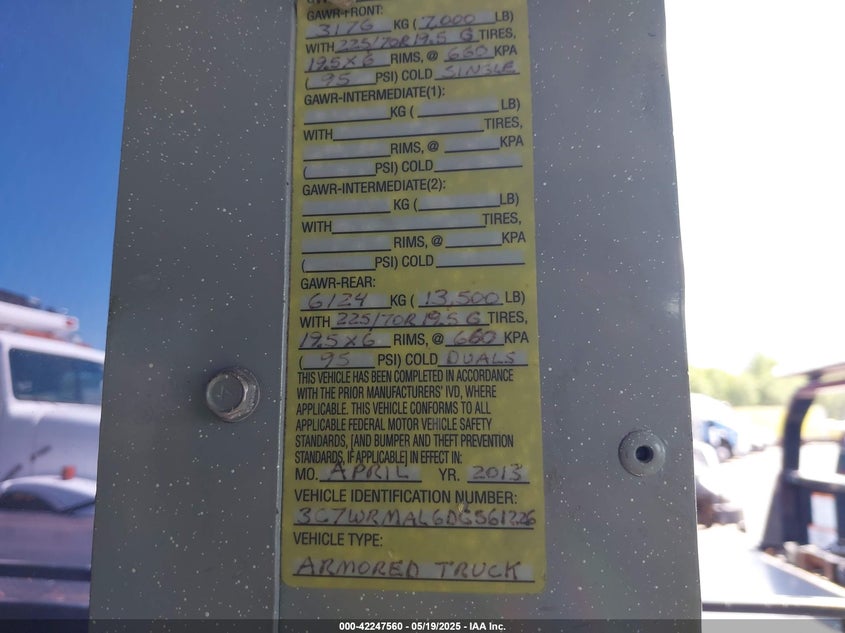 GAWR-FRONT:
3176 KG ( 7,000 LB)
WITH 225/70R19.5 G TIRES,
19.5X6 RIMS, @ 660 KPA
( 95 PSI) COLD SINGLE
GAWR-INTERMEDIATE(1):
KG ( LB)
WITH TIRES,
RIMS, @ KPA
( PSI) COLD
GAWR-INTERMEDIATE(2):
KG ( LB)
WITH TIRES,
RIMS, @ KPA
( PSI) COLD
GAWR-REAR:
6124 KG ( 13,500 LB)
WITH 225/70R19.5 G TIRES,
19.5X6 RIMS, @ 660 KPA
( 95 PSI) COLD DUALS
THIS VEHICLE HAS BEEN COMPLETED IN ACCORDANCE
WITH THE PRIOR MANUFACTURERS' IVD, WHERE
APPLICABLE. THIS VEHICLE CONFORMS TO ALL
APPLICABLE FEDERAL MOTOR VEHICLE SAFETY
STANDARDS, [AND BUMPER AND THEFT PREVENTION
STANDARDS, IF APPLICABLE] IN EFFECT IN:
MO. APRIL YR. 2013
VEHICLE IDENTIFICATION NUMBER:
3C7WRMAL6DG561226
VEHICLE TYPE:
ARMORED TRUCK
000-42247560 - 05/19/2025 - IAA Inc.